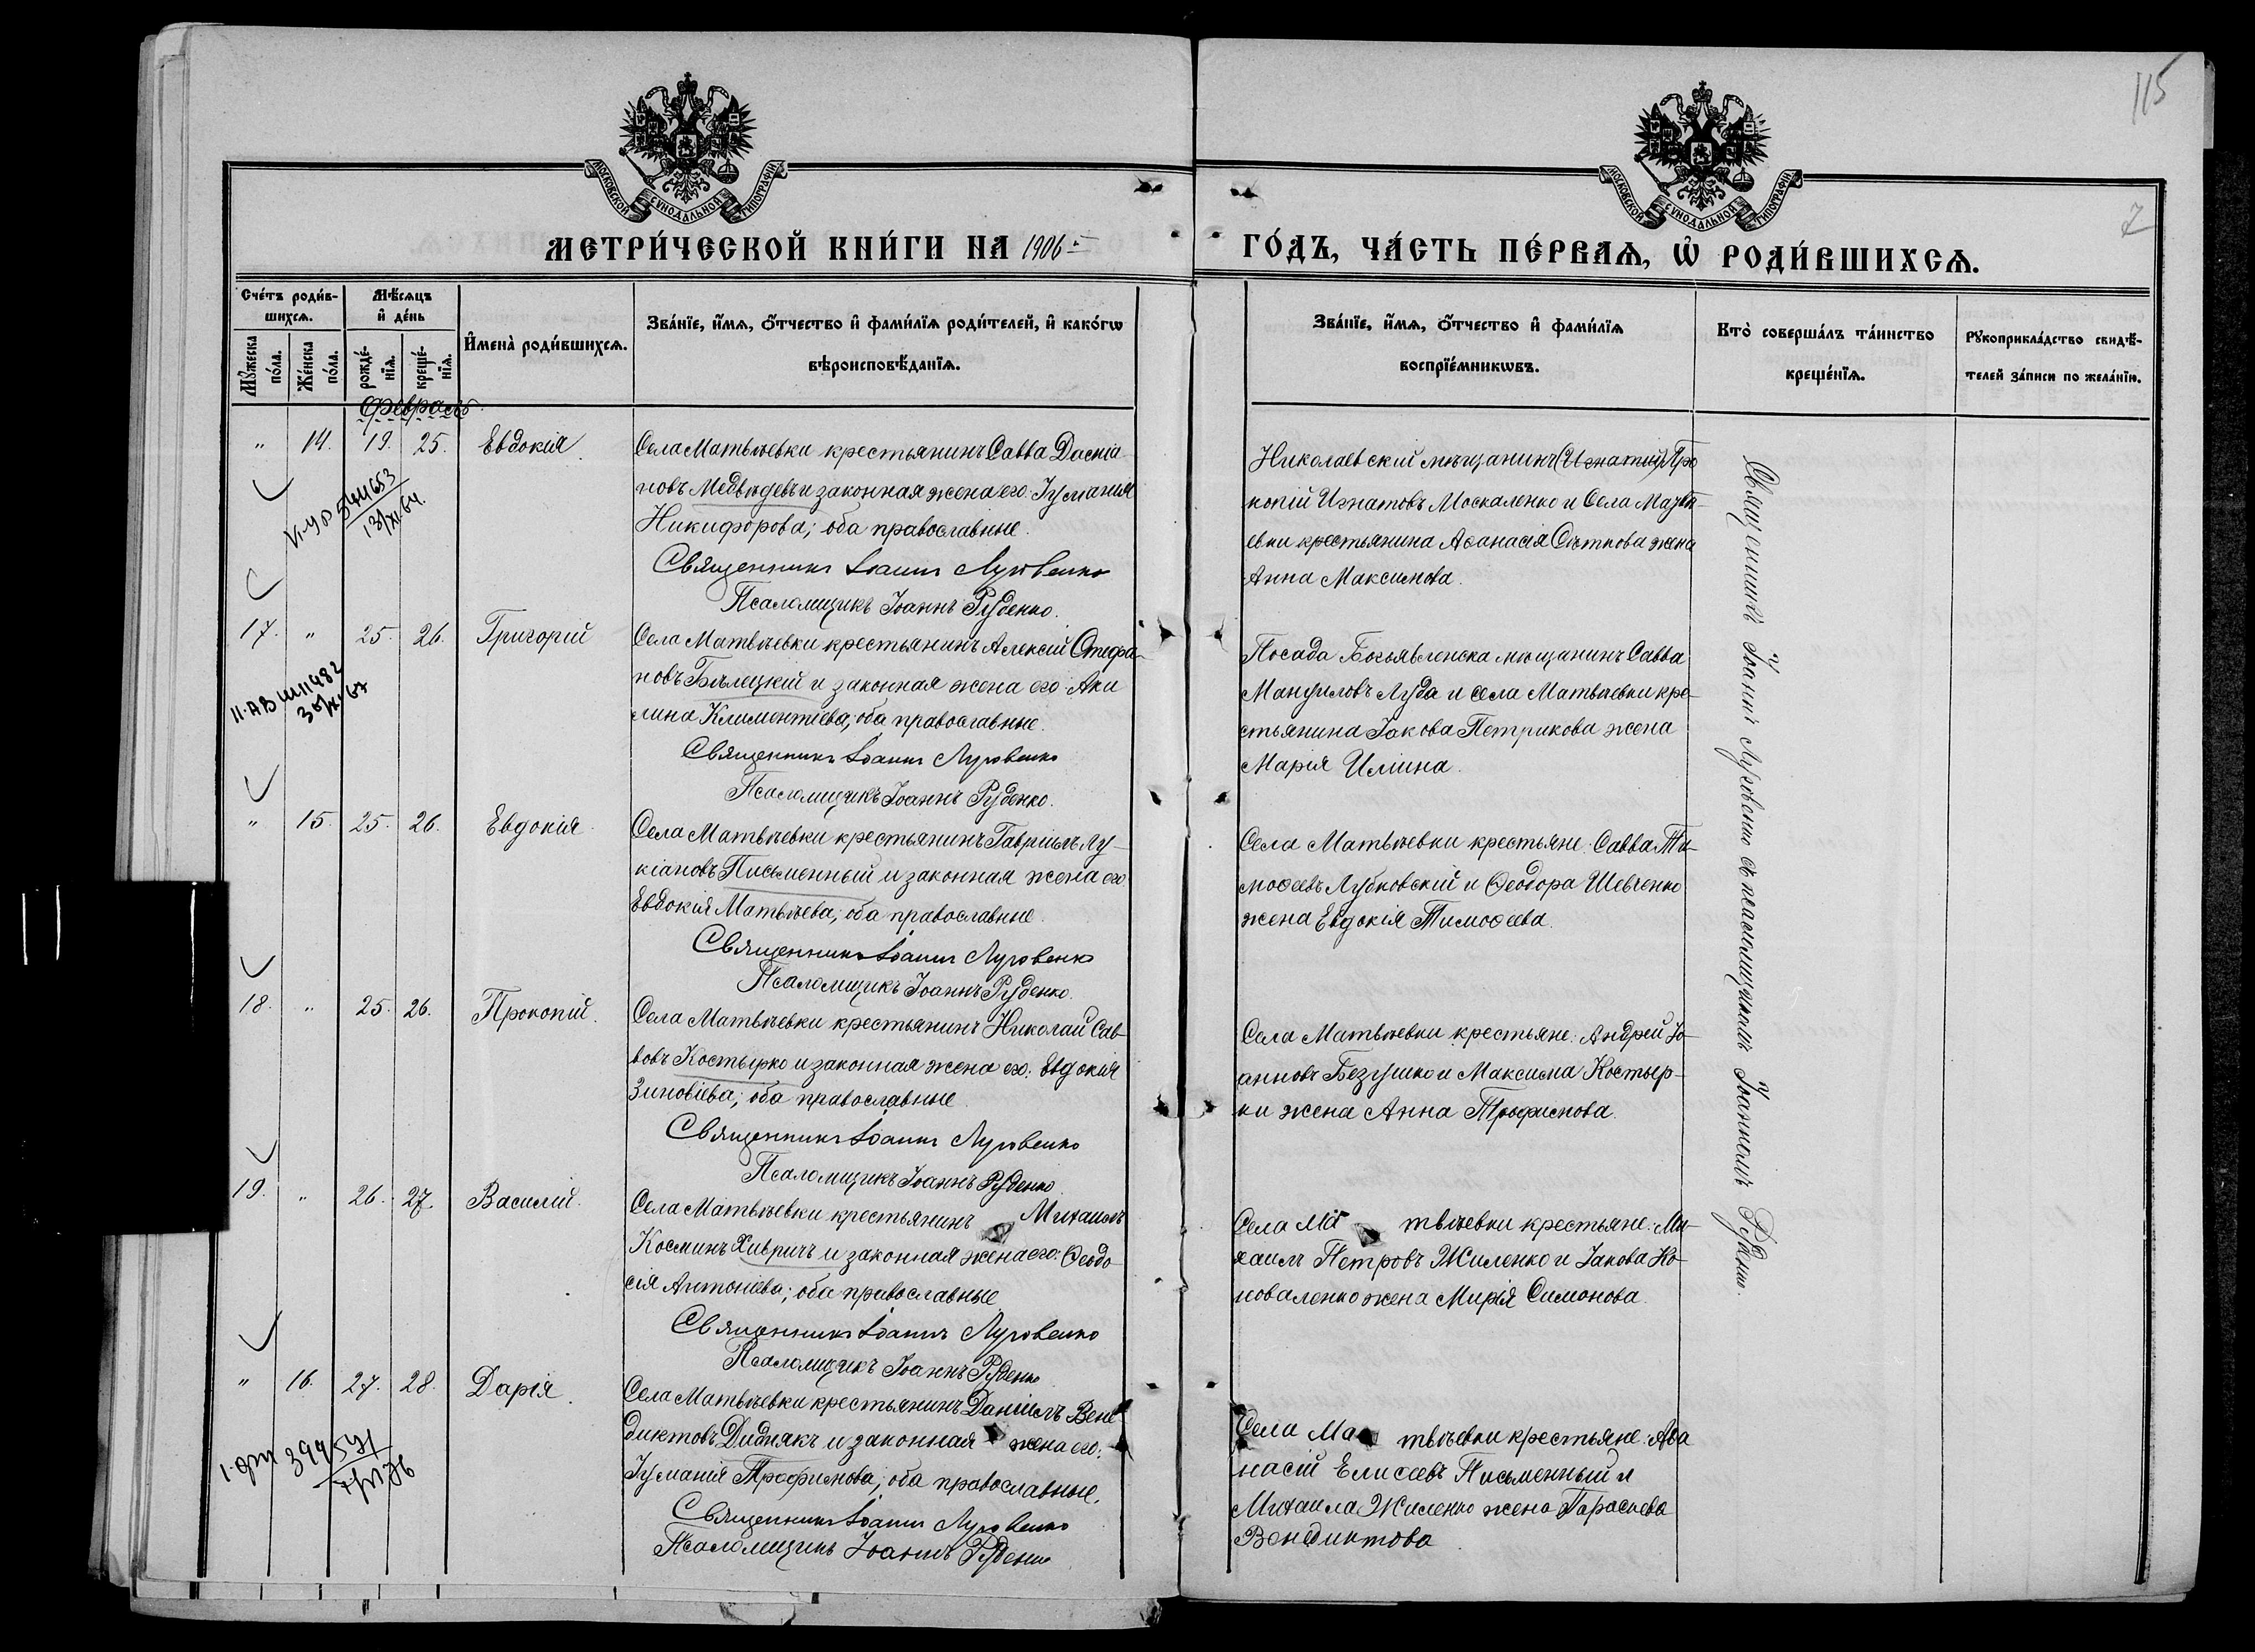 115
7
МОСКОВСКОЙ СѴНОДАЛЬНОЙ ТИПОГРАФІИ
МОСКОВСКОЙ СѴНОДАЛЬНОЙ ТИПОГРАФІИ
МЕТРИ́ЧЕСКОЙ КНИ́ГИ НА 1906 ГО́ДЪ, ЧА́СТЬ ПЕ́РВАѦ, Ѽ РОДИ́ВШИХСѦ.
Сче́тъ роди́в-
шихсѧ.
Мꙋ́жеска по́ла.
Же́нска по́ла.
Мѣ́сѧцъ
и҆ де́нь
рожде́-
нїѧ.
креще́-
нїѧ.
И҆мена̀ роди́вшихсѧ.
Зва́нїе, и҆́мѧ, ѻ҆́тчество и҆ фами́лїѧ роди́телей, и҆ како́гѡ
вѣроисповѣ́данїѧ.
Зва́нїе, и҆́мѧ, ѻ҆́тчество и҆ фами́лїѧ
воспрїе́мникѡвъ.
Кто̀ соверша́лъ та́инство
креще́нїѧ.
Рꙋкоприкла́дство свидѣ́-
телей за́писи по жела́нїю.
Февраль
" 14. 19. 25. Евдокія
Села Матвѣевки крестьянинъ Савва Даміа
новъ Медвѣдевъ и законная жена его Іуманія
Никифорова; оба православные.
Священникъ Іоаннъ Луговенко
Псаломщикъ Іоаннъ Руденко.
Николаевскій мѣщанинъ (Игнатій) Про
копій Игнатовъ Москаленко и Села Матвѣ-
евки крестьянина Аѳанасія Ситкова жена
Анна Максимова.
17. " 25. 26. Григорій
Села Матвѣевки крестьянинъ Алексій Стефа-
новъ Бѣлецкій и законная жена его Аки
лина Климентіева; оба православные.
Священникъ Іоаннъ Луговенко
Псаломщикъ Іоаннъ Руденко.
Посада Богоявленска мѣщанинъ Савва
Мануиловъ Луда и села Матвѣевки кре-
стьянина Іакова Петрикова жена
Марія Иліина.
" 15. 25. 26. Евдокія
Села Матвѣевки крестьянинъ Гавріилъ Лу-
кіановъ Письменный и законная жена его
Евдокія Матвѣева; оба православные.
Священникъ Іоаннъ Луговенко
Псаломщикъ Іоаннъ Руденко.
Села Матвѣевки крестьяне: Савва Ти-
моѳеевъ Лубковскій и Ѳеодора Шевченко
жена Евдокія Тимоѳеева.
18. " 25. 26. Прокопій.
Села Матвѣевки крестьянинъ Николай Сав-
вовъ Костырко и законная жена его: Евдокія
Зиновіева; оба православные
Священникъ Іоаннъ Луговенко
Псаломщикъ Іоаннъ Руденко
Села Матвѣевки крестьяне: Андрей Іо-
анновъ Безушко и Максима Костыр-
ки жена Анна Трофимова.
19. " 26. 27. Василій.
Села Матвѣевки крестьянинъ Михаилъ
Косминъ Хивричъ и законная жена его: Ѳеодо-
сія Антоніева; оба православные
Священникъ Іоаннъ Луговенко
Псаломщикъ Іоаннъ Руденко
Села Матвѣевки крестьяне: Ми-
хаилъ Петровъ Жиленко и Іакова Ко-
новаленко жена Марія Симонова.
" 16. 27. 28. Дарія.
Села Матвѣевки крестьянинъ Даніилъ Вене
диктовъ Дидиякъ и законная жена его:
Іуманія Трофимова; оба православные.
Священникъ Іоаннъ Луговенко
Псаломщикъ Іоаннъ Руденко
Села Матвѣевки крестьяне: Аѳа
насій Елисеевъ Письменный и
Михаила Жиленко жена Параскева
Венедиктова
Священникъ Іоаннъ Луговенко съ псаломщикомъ Іоанномъ Руденко.